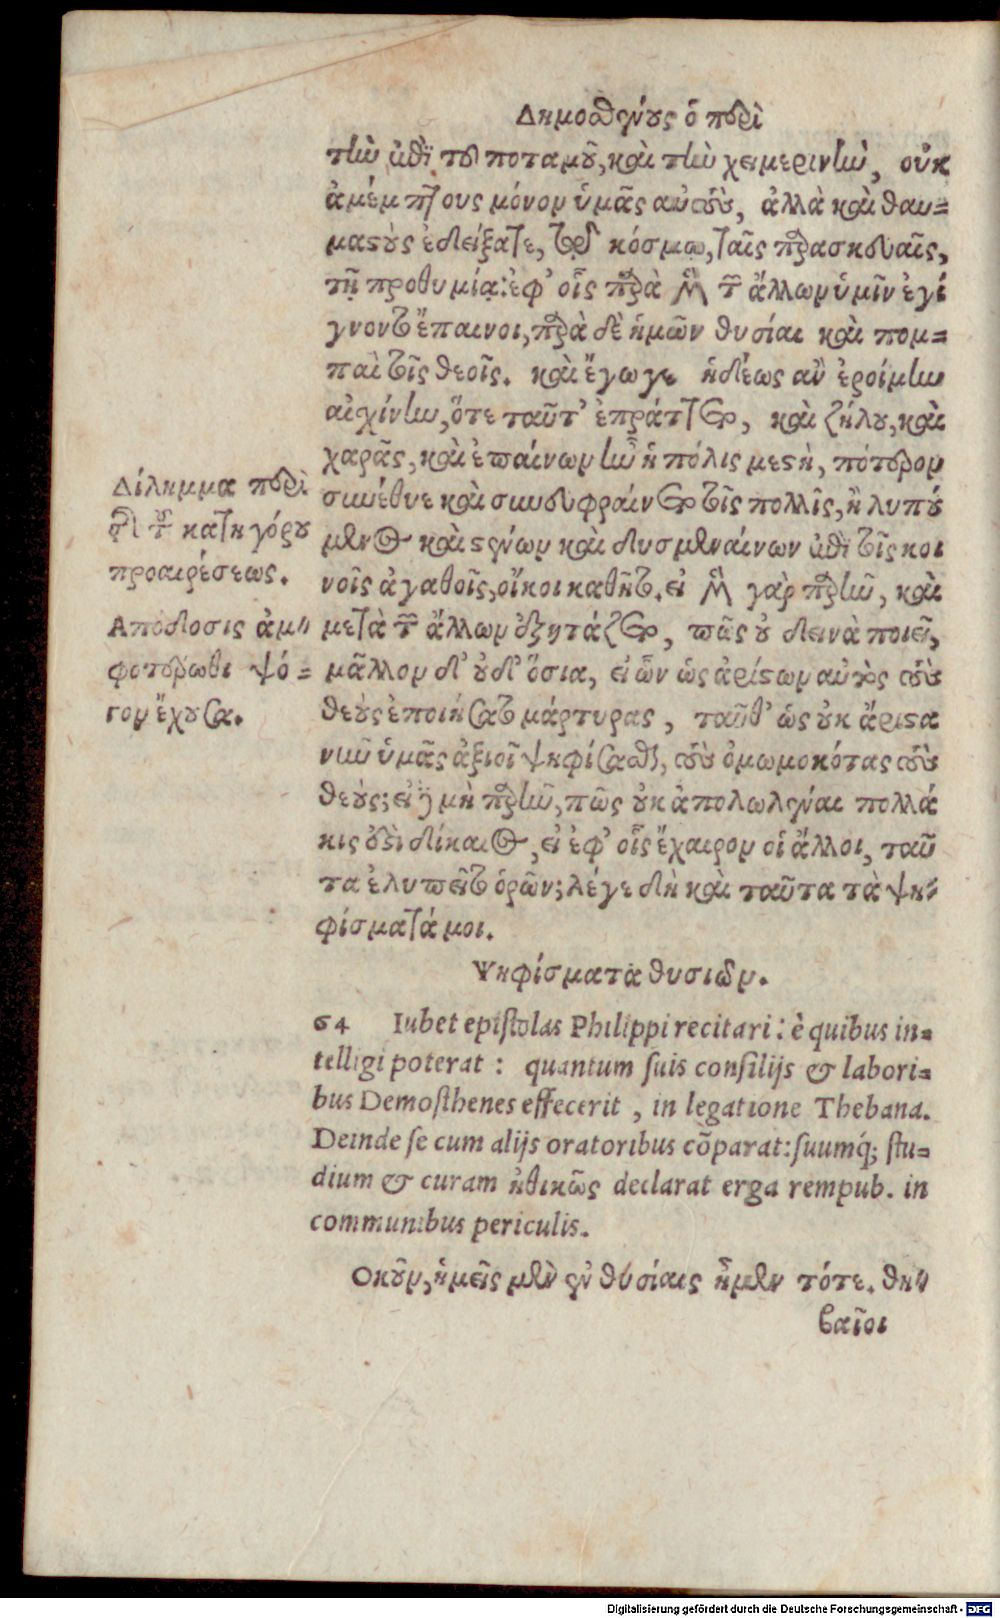 Δημοσθένους ὁ περὶ
τὴν ἐπὶ τοῦ ποταμοῦ, καὶ τὴν χειμερινὴν, οὐκ
ἀμέμπτους μόνον ὑμᾶς αὐτοὺς, ἀλλὰ καὶ θαυ=
μαςοὺς ἐδείξατε, τῷ κόσμῳ, ταῖς παρασκευαῖς,
τῇ προθυμίᾳ: ἐφ' οἷς παρὰ μὲν τῶν ἄλλων ὑμῖν ἐγί
γνοντο ἔπαινοι, παρὰ δὲ ἡμῶν θυσίαι καὶ πομ=
παὶ τοῖς θεοῖς. καὶ ἔγωγε ἡδέως ἂν ἐροίμην
αἰχίνην, ὅτε ταῦτ' ἐπράττετο, καὶ ζήλου, καὶ
χαρᾶς, καὶ ἐπαίνων ἦν ἡ πόλις μεςὴ, πότερον
συνέθυε καὶ συνευφραίνετο τοῖς πολλοῖς, ἢ λυπού
μενος καὶ ςένων καὶ δυσμεναίνων ἐπὶ τοῖς κοι
νοῖς ἀγαθοῖς, οἴκοι καθῆτο. εἰ μὲν γὰρ παρῆν, καὶ
μετὰ τῶν ἄλλων ἐξητάζετο, πῶς οὐ δεινὰ ποιεῖ,
μᾶλλον δ' οὐδ' ὅσια, εἰ ὧν ὡς ἀρίςων αὐτὸς τοὺς
θεοὺς ἐποιήσατο μάρτυρας, ταῦθ' ὡς οὐκ ἄριςα
νῦν ὑμᾶς ἀξιοῖ ψηφίσασθαι, τοὺς ὀμωμοκότας τοὺς
θεούς; εἰ δὲ μὴ παρῆν, πῶς οὐκ ἀπολωλέναι πολλά
κις ἐςὶ δίκαιος, εἰ ἐφ' οἷς ἔχαιρον οἱ ἄλλοι, ταῦ
τα ἐλυπεῖτο ὁρῶν; λέγε δὴ καὶ ταῦτα τὰ ψη=
φίσματά μοι.
Δίλημμα περὶ
τῆς τοῦ κατηγόρου
προαιρέσεως.
Απόδοσις ἀμ=
φοτέρωθι ψό=
γον ἔχουσα.
Ψηφίσματα θυσιῶν.
64 Iubet epistolas Philippi recitari: è quibus in=
telligi poterat: quantum suis consilijs & labori=
bus Demosthenes effecerit, in legatione Thebana.
Deinde se cum alijs oratoribus cõparat: suumq́; stu=
dium & curam ἠθικῶς declarat erga rempub. in
communibus periculis.
Οκοῦν, ἡμεῖς μὲν ἐν θυσίαις ἦμεν τότε. θη=
βαῖοι
Digitalisierung gefördert durch die Deutsche Forschungsgemeinschaft - DFG